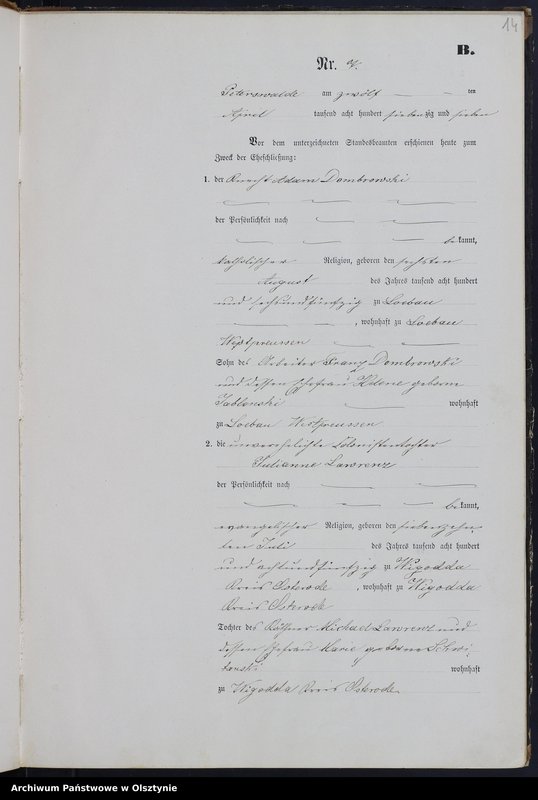 14
B.
Nr. 9.
Peterswalde am zwölf ten
April tausend acht hundert siebenzig und sieben
Vor dem unterzeichneten Standesbeamten erschienen heute zum
Zweck der Eheschließung:
1. der Knecht Adam Dombrowski
der Persönlichkeit nach
bekannt,
katholischer Religion, geboren den sechsten
August des Jahres tausend acht hundert
und sechsundfünfzig zu Loebau
, wohnhaft zu Loebau
Westpreussen
Sohn des Arbeiter Franz Dombrowski
und dessen Ehefrau Helene geborne
Jablonski wohnhaft
zu Loebau Westpreussen
2. die unverehelichte Kolonistentochter
Julianne Lawrenz
der Persönlichkeit nach
bekannt,
evangelischer Religion, geboren den siebenzehn
ten Juli des Jahres tausend acht hundert
und achtundfünfzig zu Wigodda
Kreis Osterode , wohnhaft zu Wigodda
Kreis Osterode
Tochter des Michael Lawrenz und
dessen Ehefrau Marie geborne
wohnhaft
zu Wigodda Kreis Osterode
Archiwum Państwowe w Olsztynie